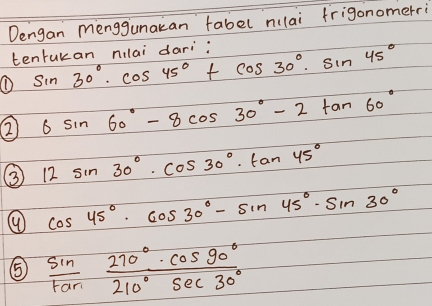 Dengan menggunakan tabel nilai trigonometri
tentukan nilai dari :
① Sin 30° . cos 45° + cos 30° . sin 45°
② 6 sin 60° - 8 cos 30° - 2 tan 60°
③ 12 sin 30° . cos 30° . tan 45°
④ cos 45° . cos 30° - sin 45° . sin 30°
⑤ Sin 270° . cos 90°
tan 210° sec 30°